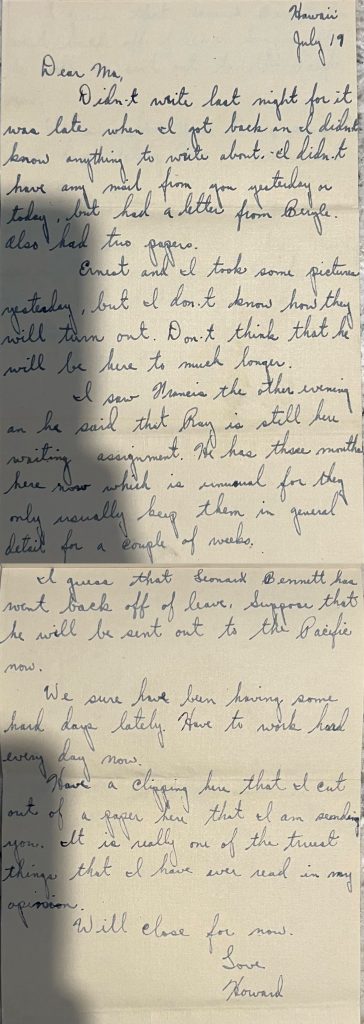 Hawaii
July 19
Dear Ma,
Didn-t write last night for it
was late when I got back an I didnt
know anything to write about. I didn.t
have any mail from you yesterday or
today, but had a letter from Beryle.
Also had two papers.
Ernest and I took some pictures
yesterday, but I don.t know how they
will turn out. Don.t think that he
will be here to much longer.
I saw Francis the other evening
an he said that Ray is still here
waiting assignment. He has three months
here now which is unusual for they
only usually keep them in general
detail for a couple of weeks.
I guess that Leonard Bennett has
went back off of leave. Suppose that
he will be sent out to the Pacific
now.
We sure have been having some
hard days lately. Have to work hard
every day now.
Have a clipping here that I cut
out of a paper here that I am seending
you. It is really one of the truest
things that I have ever read in my
opinion.
Will close for now.
Love
Howard